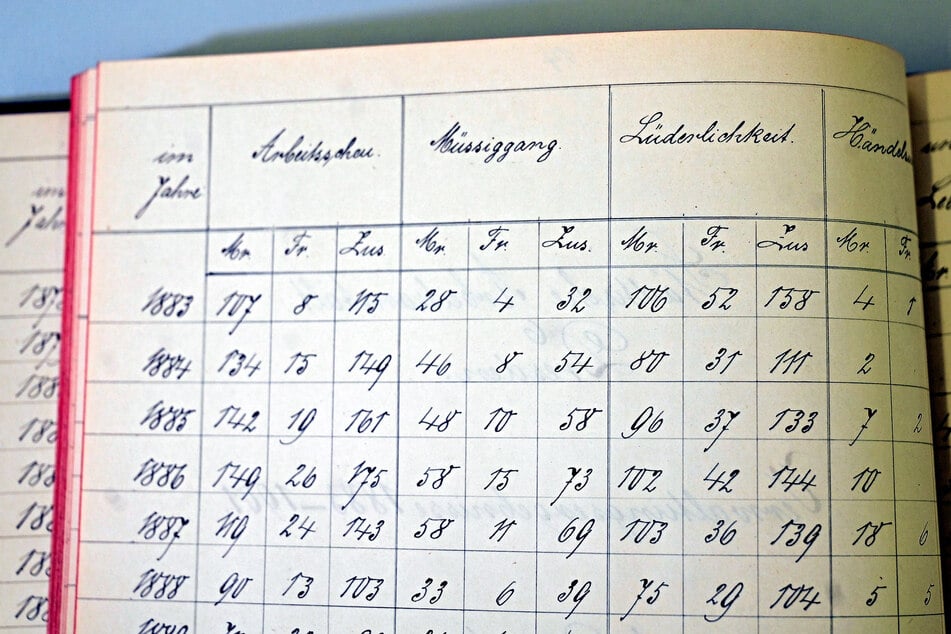 im Jahre Arbeitsscheu. Müssiggang. Lüderlichkeit.
Mr. Fr. Zus. Mr. Fr. Zus. Mr. Fr. Zus Mr. Fr.
1883 107 8 115 28 4 32 106 52 158 4 1
1884 134 15 149 46 8 54 80 31 111 2
1885 142 19 161 48 10 58 96 37 133 7 2
1886 149 26 175 58 15 73 102 42 144 10
1887 119 24 143 58 11 69 103 36 139 18 6
1888 90 13 103 33 6 39 75 29 104 5 5